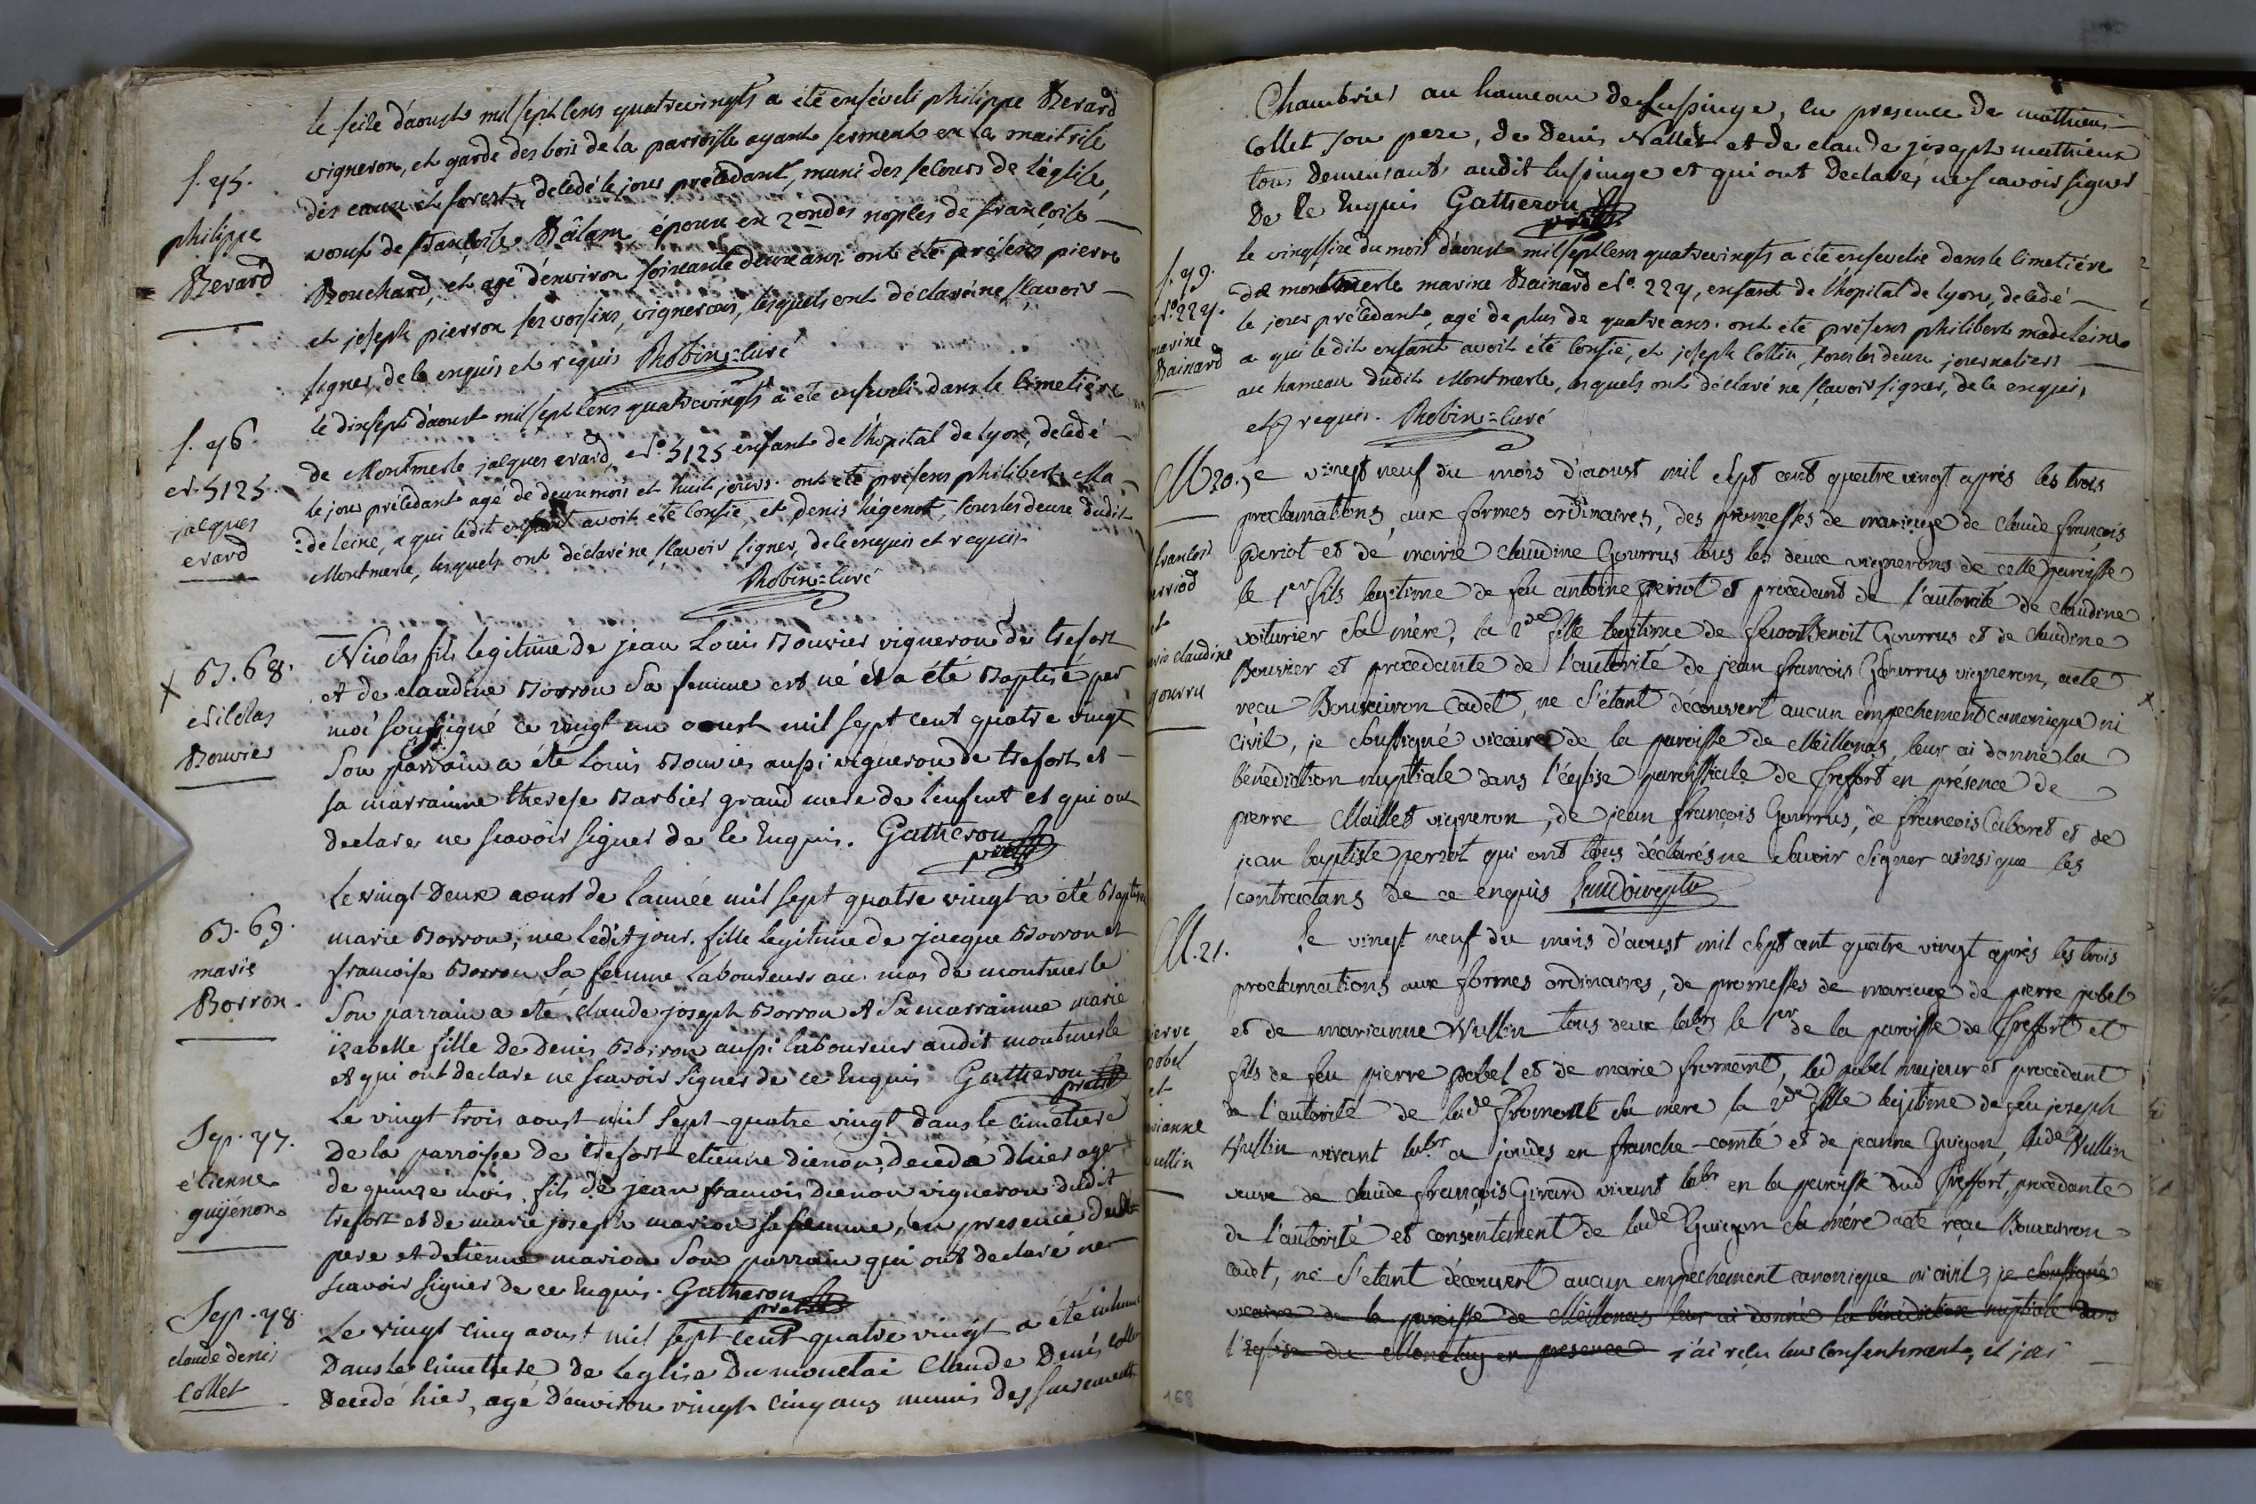 le seize d'aoust mil sept cens quatrevingts a été enséveli philippe Berard
vigneron, et garde des bois de la parroisse ayant serment en la maitrise
s. 75.
des eaux et forests, décédé le jour précédant, muni des secours de l'église,
philippe
Berard
voeuf de françoise époux en 2ondes nopces de françoise
Bouchard, et agé d'environ soixante deux ans ont été présens pierre
et joseph pierron ses voisins, vignerons, lesquels ont déclaré ne sçavoir
signer, de ce enquis et requis Robin=curé
le dixsept d'aoust mil sept cens quatrevingts a été enseveli dans le cimetiére
s. 76.
n. 5125.
jacques
evard
de Montmerle jacques evard, n° 5125 enfant de l'hopital de lyon, décédé
le jour précédant agé de deux mois et huit jours. ont été présens philibert Ma
=deleine, a qui ledit enfant avoit été confié, et denis légenot, tous les deux dudit
Montmerle, lesquels ont déclaré ne sçavoir signer, de ce enquis et requis
Robin=curé
B. 68.
Nicolas
Bouvier
Nicolas fils legitime de jean Louis Bouvier vigneron de trefort
et de claudine Borron sa femme est né et a été Baptisé par
moi soussigné ce vingt un aoust mil sept cent quatre vingt
Son parrain a été Louis Bouvier aussi vigneron de trefort et
sa marrainne therese Barbier grand mere de l'enfant et qui ont
declare ne scavoir signer de ce Enquis. Gatheron
prêtre
Le vingt Deux aoust de l'année mil sept quatre vingt a été Baptisé
B. 69.
marie
Borron.
marie Borron, née ledit jour. fille legitime de jacque Borron et
francoise Borron sa femme Laboureurs au mas de montmerle
Son parrain a été claude joseph Borron et sa marrainne marie
izabelle fille de Denis Borron aussi laboureur audit montmerle
et qui ont declare ne scavoir signer de ce Enquis Gatheron
prêtre
Le vingt trois aoust mil sept quatre vingt dans le cimetiere
Sep. 77.
étienne
guyénon
De la parroisse de trefort etienne dienon, decedé d'hier agé
de quinze mois. fils de jean francois Dienon vigneron dudit
trefort et de marie joseph marion sa femme, en presence dudt
pere et detienne marion Son parrain qui ont declaré ne
scavoir signer de ce Enquis. Gatheron
prêtre
Sep. 78.
claude denis
Collet
Le vingt cinq aoust mil sept cent quatre vingt a été inhumé
Dans le cimetiere de Leglise Du monetai Claude Denis Collet
Decedé hier, agé d'environ vingt cinq ans munis des sacrements
Chambrier au hameau de Luspinge, en presence de mathieu
Collet son pere, de Denis Nallet et de claude joseph mathieux
tous demeurants audit luspinge et qui ont Declaré, ne scavoir signer
De ce Enquis Gatheron
prêtre
le vingtsix du mois d'aoust mil sept cens quatrevingts a été ensevelie dans le cimetiére
s. 79.
n°. 227.
marine
Rainard
de montmerle marine Rainard n°. 227, enfant de l'hopital de lyon, décédé
le jour précédant, agé de plus de quatre ans. ont été présens philibert madeleine
a qui le dit enfant avoit été confié, et joseph Collin, tous les deux journaliers
au hameau dudit Montmerle, lesquels ont déclaré ne sçavoir signer, de ce enquis,
et requis. Robin=curé
M 20.
Le vingt neuf du mois d'aoust mil sept cent quatre vingt aprés les trois
proclamations aux formes ordinaires, des promesses de mariage de claude françois
françois
erriod
et
arie claudine
gourru
periot et de marie claudine Gourrus tous les deux vignerons de cette paroisse
le 1er fils legitime de feu antoine periot et procedant de l'autorité de claudine
voiturier sa mère, la 2de fille legitime de Benoit Gourrus et de claudine
Bouvier et procedante de l'autorité de jean françois Gourrus vigneron, acte
recu Bouvairon Cadet, ne s'étant découvert aucun empechement canonique ni
civil, je soussigné vicaire de la paroisse de Meillonas leur ai donné la
bénédiction nuptiale dans l'église paroissiale de Treffort en présence de
pierre Maillet vigneron, de jean françois Gourrus, de francois Caboret et de
jean baptiste perriot qui ont tous déclarés ne savoir signer ainsi que les
contractans de ce enquis
M. 21.
Le vingt neuf du mois d'aoust mil sept cent quatre vingt après les trois
proclamations aux formes ordinaires, de promesses de mariage de pierre pobel
ierre
pobel
et
rianne
vullin
et de marianne Vullin tous deux labrs le 1er de la paroisse de Treffort et
fils de feu pierre pobel et de marie froment, led pobel majeur et procedant
de l'autorité de lade froment sa mere la 2de fille legitime de feu joseph
Vullin vivant labr a joudes en franche-comté et de jeanne Guigon, lade Vullin
veuve de claude françois Girard vivant labr en la paroisse dud Treffort, procedante
de l'autorité et consentement de lade Guigon sa mére acte reçu Bouvairon
cadet, ne s'étant découvert aucun empechement canonique ni civil, je soussigné
vicaire de la paroisse de Meillonas leur ai donné la bénédiction nuptiale dans
l'Eglise du Monetay en presence j'ai reçu leur consentement, et j'ai
168